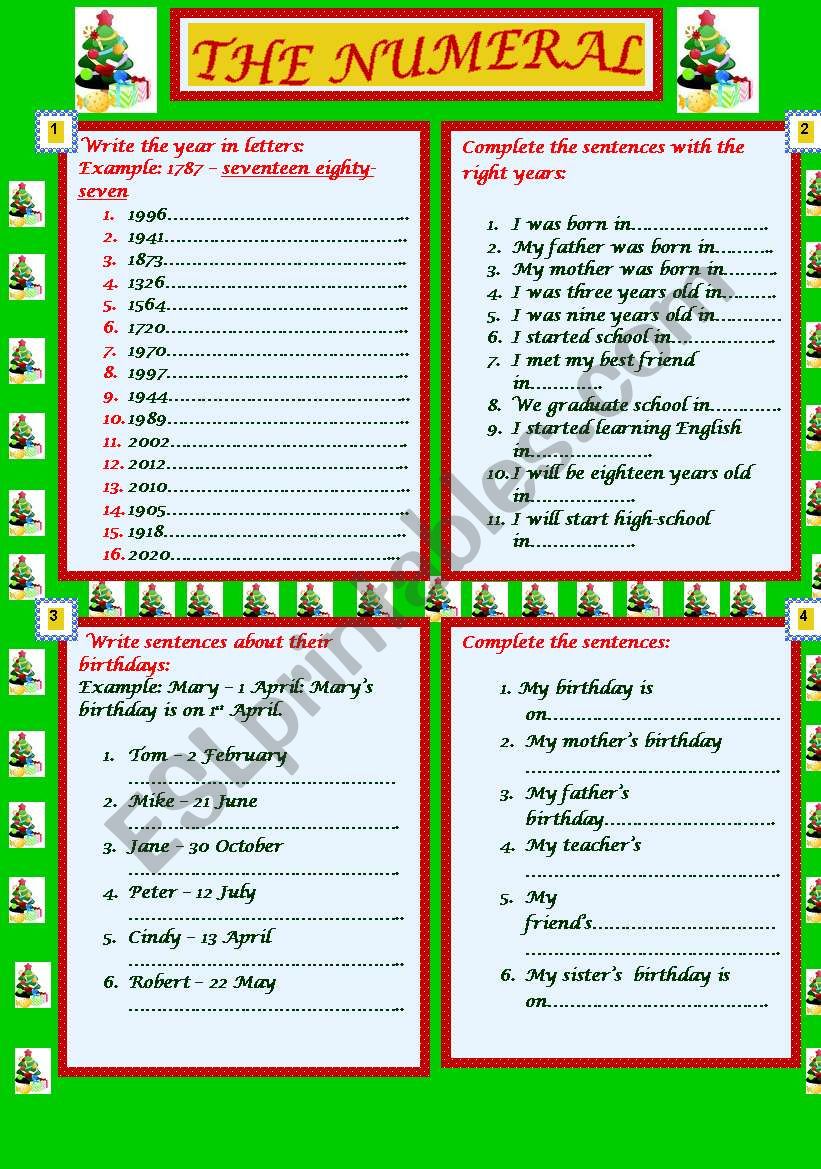 THE NUMERAL
1
Write the year in letters:
Example: 1787 – seventeen eighty-
seven
1. 1996…………………………………..
2. 1941…………………………………..
3. 1873…………………………………..
4. 1326…………………………………..
5. 1564…………………………………..
6. 1720…………………………………..
7. 1970…………………………………..
8. 1997…………………………………..
9. 1944…………………………………..
10. 1989…………………………………..
11. 2002………………………………….
12. 2012…………………………………..
13. 2010…………………………………..
14. 1905…………………………………..
15. 1918…………………………………..
16. 2020………………………………...
2
Complete the sentences with the
right years:
1. I was born in…………………….
2. My father was born in………..
3. My mother was born in……….
4. I was three years old in……….
5. I was nine years old in…………
6. I started school in……………….
7. I met my best friend
in………….
8. We graduate school in………….
9. I started learning English
in………………….
10. I will be eighteen years old
in……………….
11. I will start high-school
in……………….
3
Write sentences about their
birthdays:
Example: Mary – 1 April: Mary's
birthday is on 1st April.
1. Tom – 2 February
…………………………………………
2. Mike – 21 June
………………………………………….
3. Jane – 30 October
………………………………………….
4. Peter – 12 July
…………………………………………..
5. Cindy – 13 April
…………………………………………..
6. Robert – 22 May
…………………………………………..
4
Complete the sentences:
1. My birthday is
on……………………………………
2. My mother's birthday
……………………………………….
3. My father's
birthday………………………….
4. My teacher's
……………………………………….
5. My
friend's……………………………
……………………………………….
6. My sister's birthday is
on………………………………….
ESLprintables.com